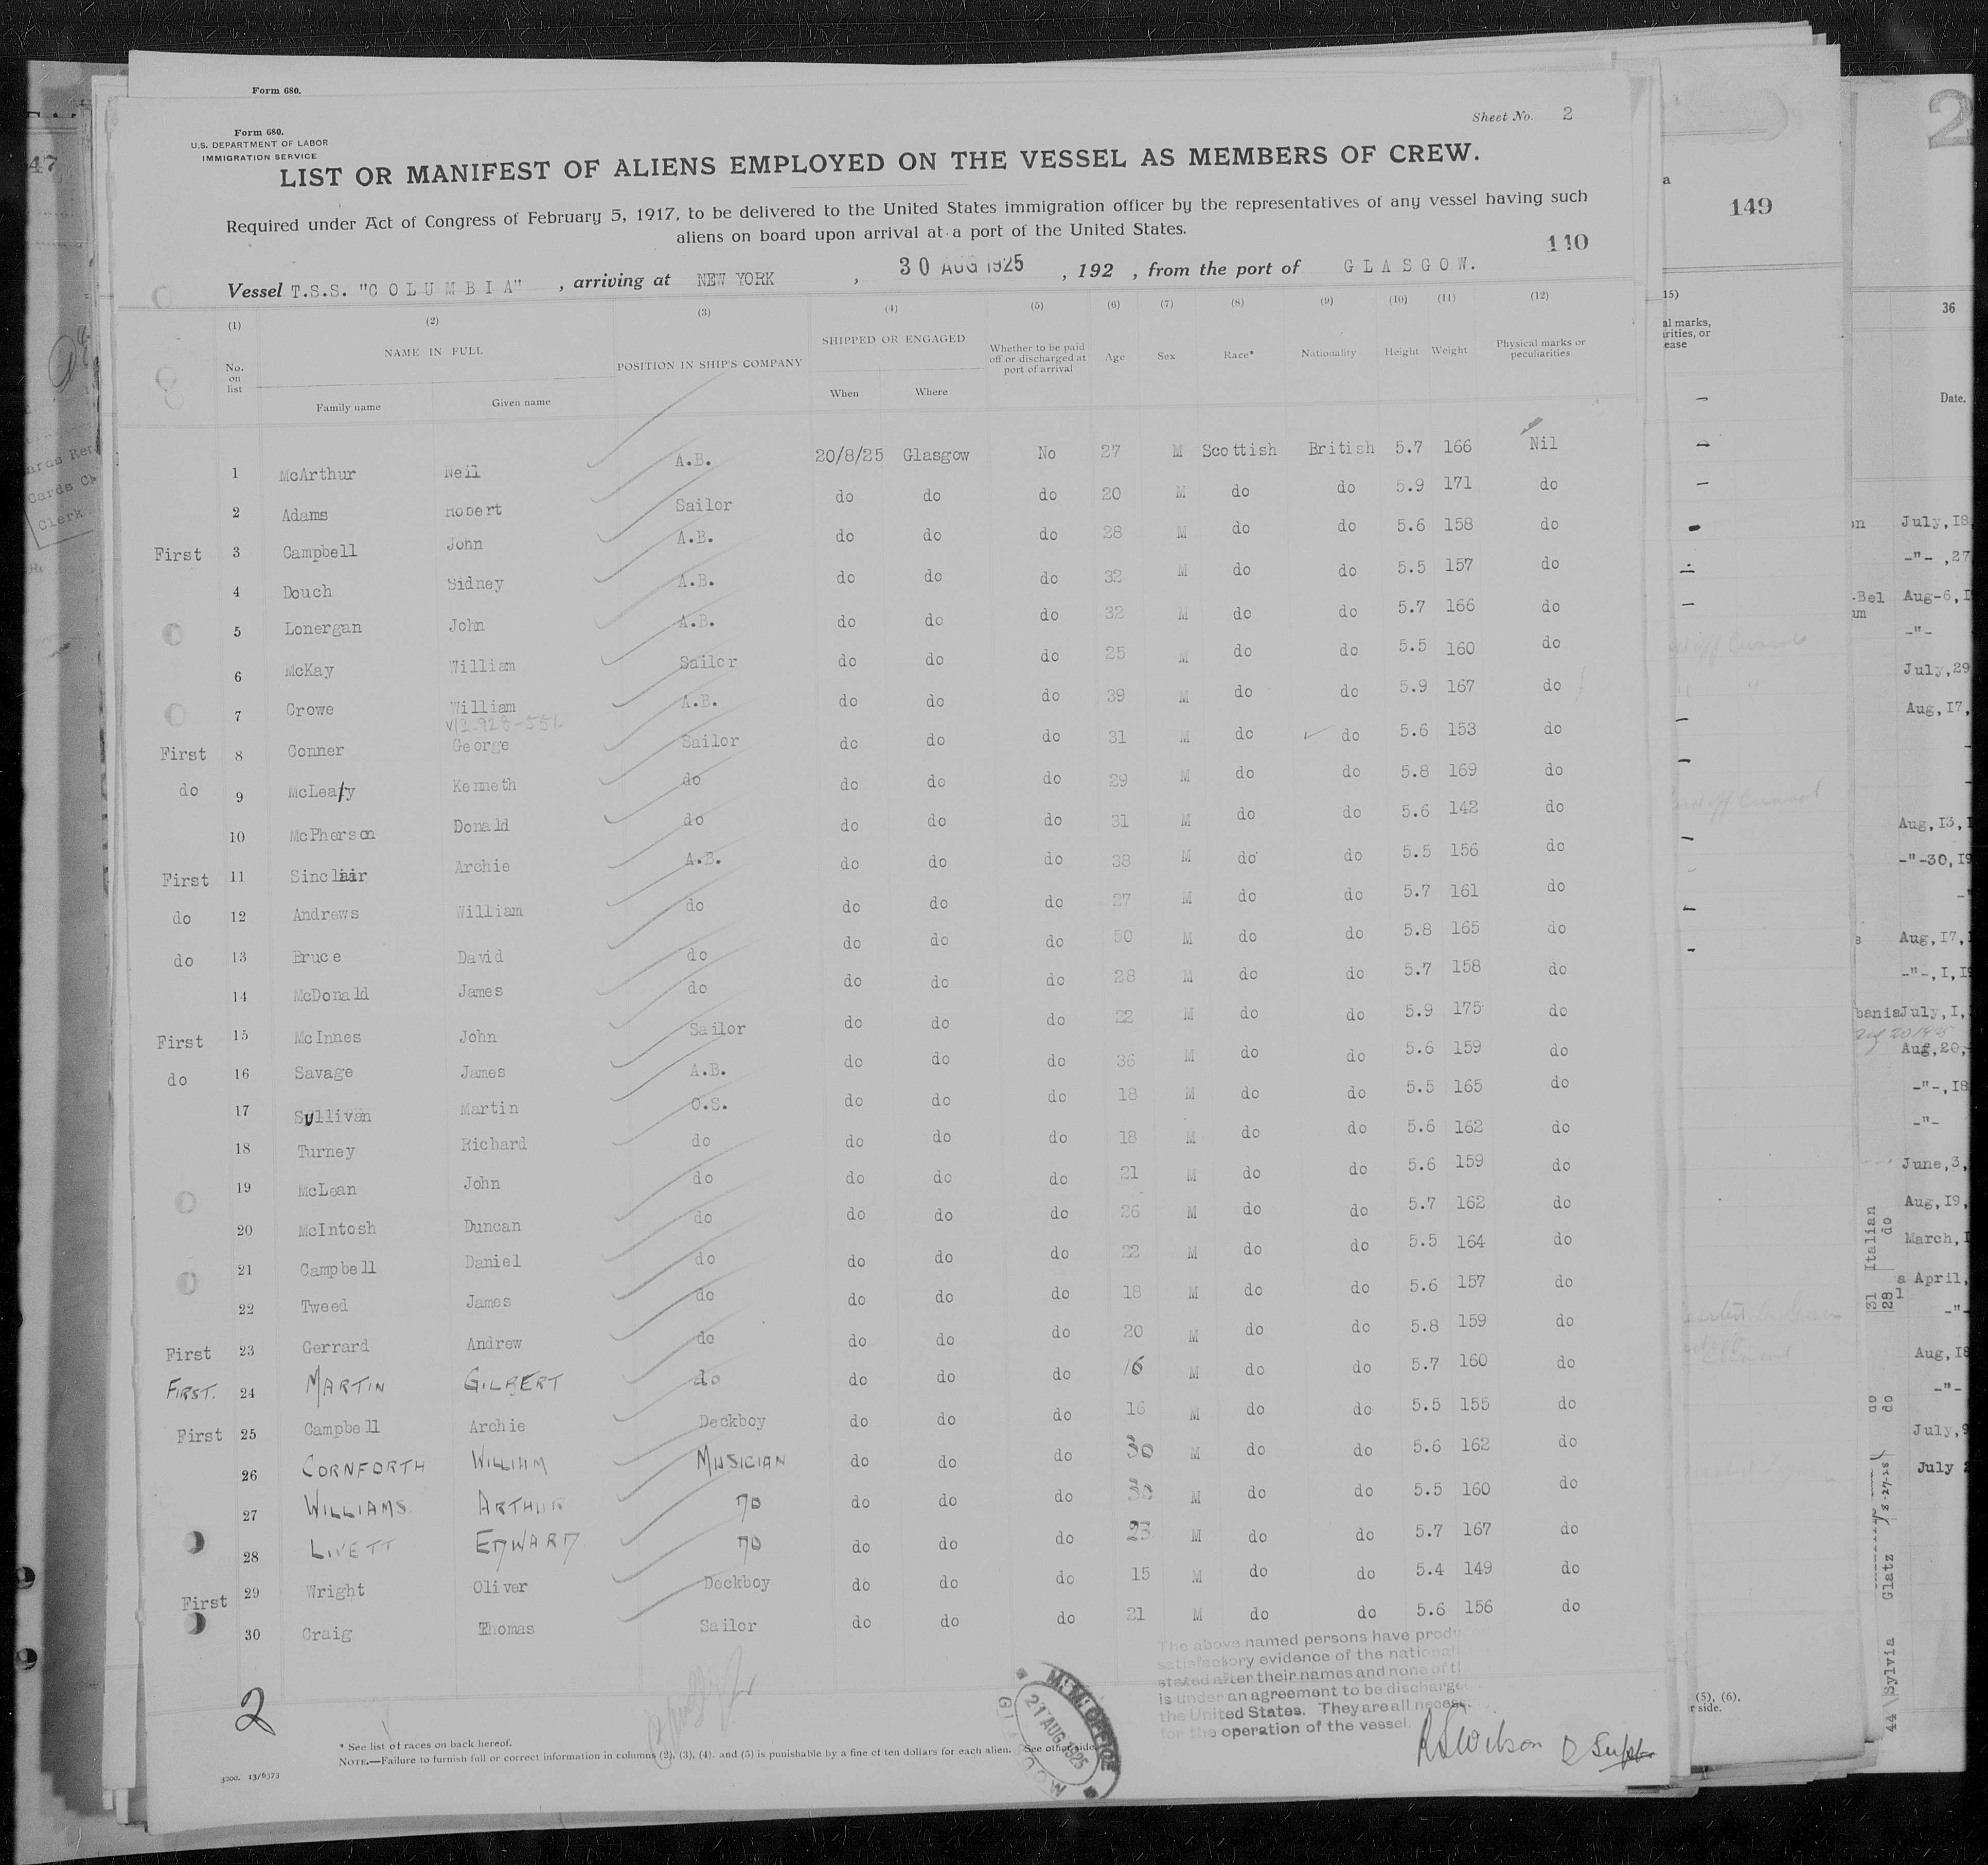 Form 680.
Form 680.
U.S. DEPARTMENT OF LABOR
IMMIGRATION SERVICE
Sheet No. 2
LIST OR MANIFEST OF ALIENS EMPLOYED ON THE VESSEL AS MEMBERS OF CREW.
Required under Act of Congress of February 5, 1917, to be delivered to the United States immigration officer by the representatives of any vessel having such
aliens on board upon arrival at a port of the United States.
110
Vessel T.S.S. "COLUMBIA" , arriving at NEW YORK , 30 AUG 1925 , 192 , from the port of GLASGOW.
(1) (2) (3) (4) (5) (6) (7) (8) (9) (10) (11) (12)
No. on list NAME IN FULL POSITION IN SHIP'S COMPANY SHIPPED OR ENGAGED Whether to be paid off or discharged at port of arrival Age Sex Race* Nationality Height Weight Physical marks or peculiarities
Family name Given name When Where
1 McArthur Neil A.B. 20/8/25 Glasgow No 27 M Scottish British 5.7 166 Nil
2 Adams Robert Sailor do do do 20 M do do 5.9 171 do
First 3 Campbell John A.B. do do do 28 M do do 5.6 158 do
4 Douch Sidney A.B. do do do 32 M do do 5.5 157 do
5 Lonergan John A.B. do do do 32 M do do 5.7 166 do
6 McKay William Sailor do do do 25 M do do 5.5 160 do
7 Crowe William A.B. do do do 39 M do do 5.9 167 do
First 8 Conner George Sailor do do do 31 M do do 5.6 153 do
do 9 McLeay Kenneth do do do do 29 M do do 5.8 169 do
10 McPherson Donald do do do do 31 M do do 5.6 142 do
First 11 Sinclair Archie A.B. do do do 38 M do do 5.5 156 do
do 12 Andrews William do do do do 27 M do do 5.7 161 do
do 13 Bruce David do do do do 50 M do do 5.8 165 do
14 McDonald James do do do do 28 M do do 5.7 158 do
First 15 McInnes John Sailor do do do 22 M do do 5.9 175 do
do 16 Savage James A.B. do do do 36 M do do 5.6 159 do
17 Sullivan Martin O.S. do do do 18 M do do 5.5 165 do
18 Turney Richard do do do do 18 M do do 5.6 162 do
19 McLean John do do do do 21 M do do 5.6 159 do
20 McIntosh Duncan do do do do 26 M do do 5.7 162 do
21 Campbell Daniel do do do do 22 M do do 5.5 164 do
22 Tweed James do do do do 18 M do do 5.6 157 do
First 23 Gerrard Andrew do do do do 20 M do do 5.8 159 do
FIRST. 24 MARTIN GILBERT do do do do 16 M do do 5.7 160 do
First 25 Campbell Archie Deckboy do do do 16 M do do 5.5 155 do
26 CORNFORTH WILLIAM MUSICIAN do do do 30 M do do 5.6 162 do
27 WILLIAMS ARTHUR DO do do do 30 M do do 5.5 160 do
28 LIVETT EDWARD DO do do do 23 M do do 5.7 167 do
First 29 Wright Oliver Deckboy do do do 15 M do do 5.4 149 do
30 Craig Thomas Sailor do do do 21 M do do 5.6 156 do
The above named persons have
satisfactory evidence of the
stated after their names and none of
is under an agreement to be
the United States. They are all
for the operation of the vessel.
2
M.M. OFFICE
21 AUG 1925
GLASGOW
R S Wilson D Supt
* See list of races on back hereof.
NOTE.—Failure to furnish full or correct information in columns (2), (3), (4), and (5) is punishable by a fine of ten dollars for each alien. See other side.
3200. 13/6373
149
36
Date.
July, 18
Aug, 17,
Aug, 13,
June, 3,
Aug, 19,
March,
April,
Italian
31
28
do
do
44 Sylvia Glatz 8-27-25